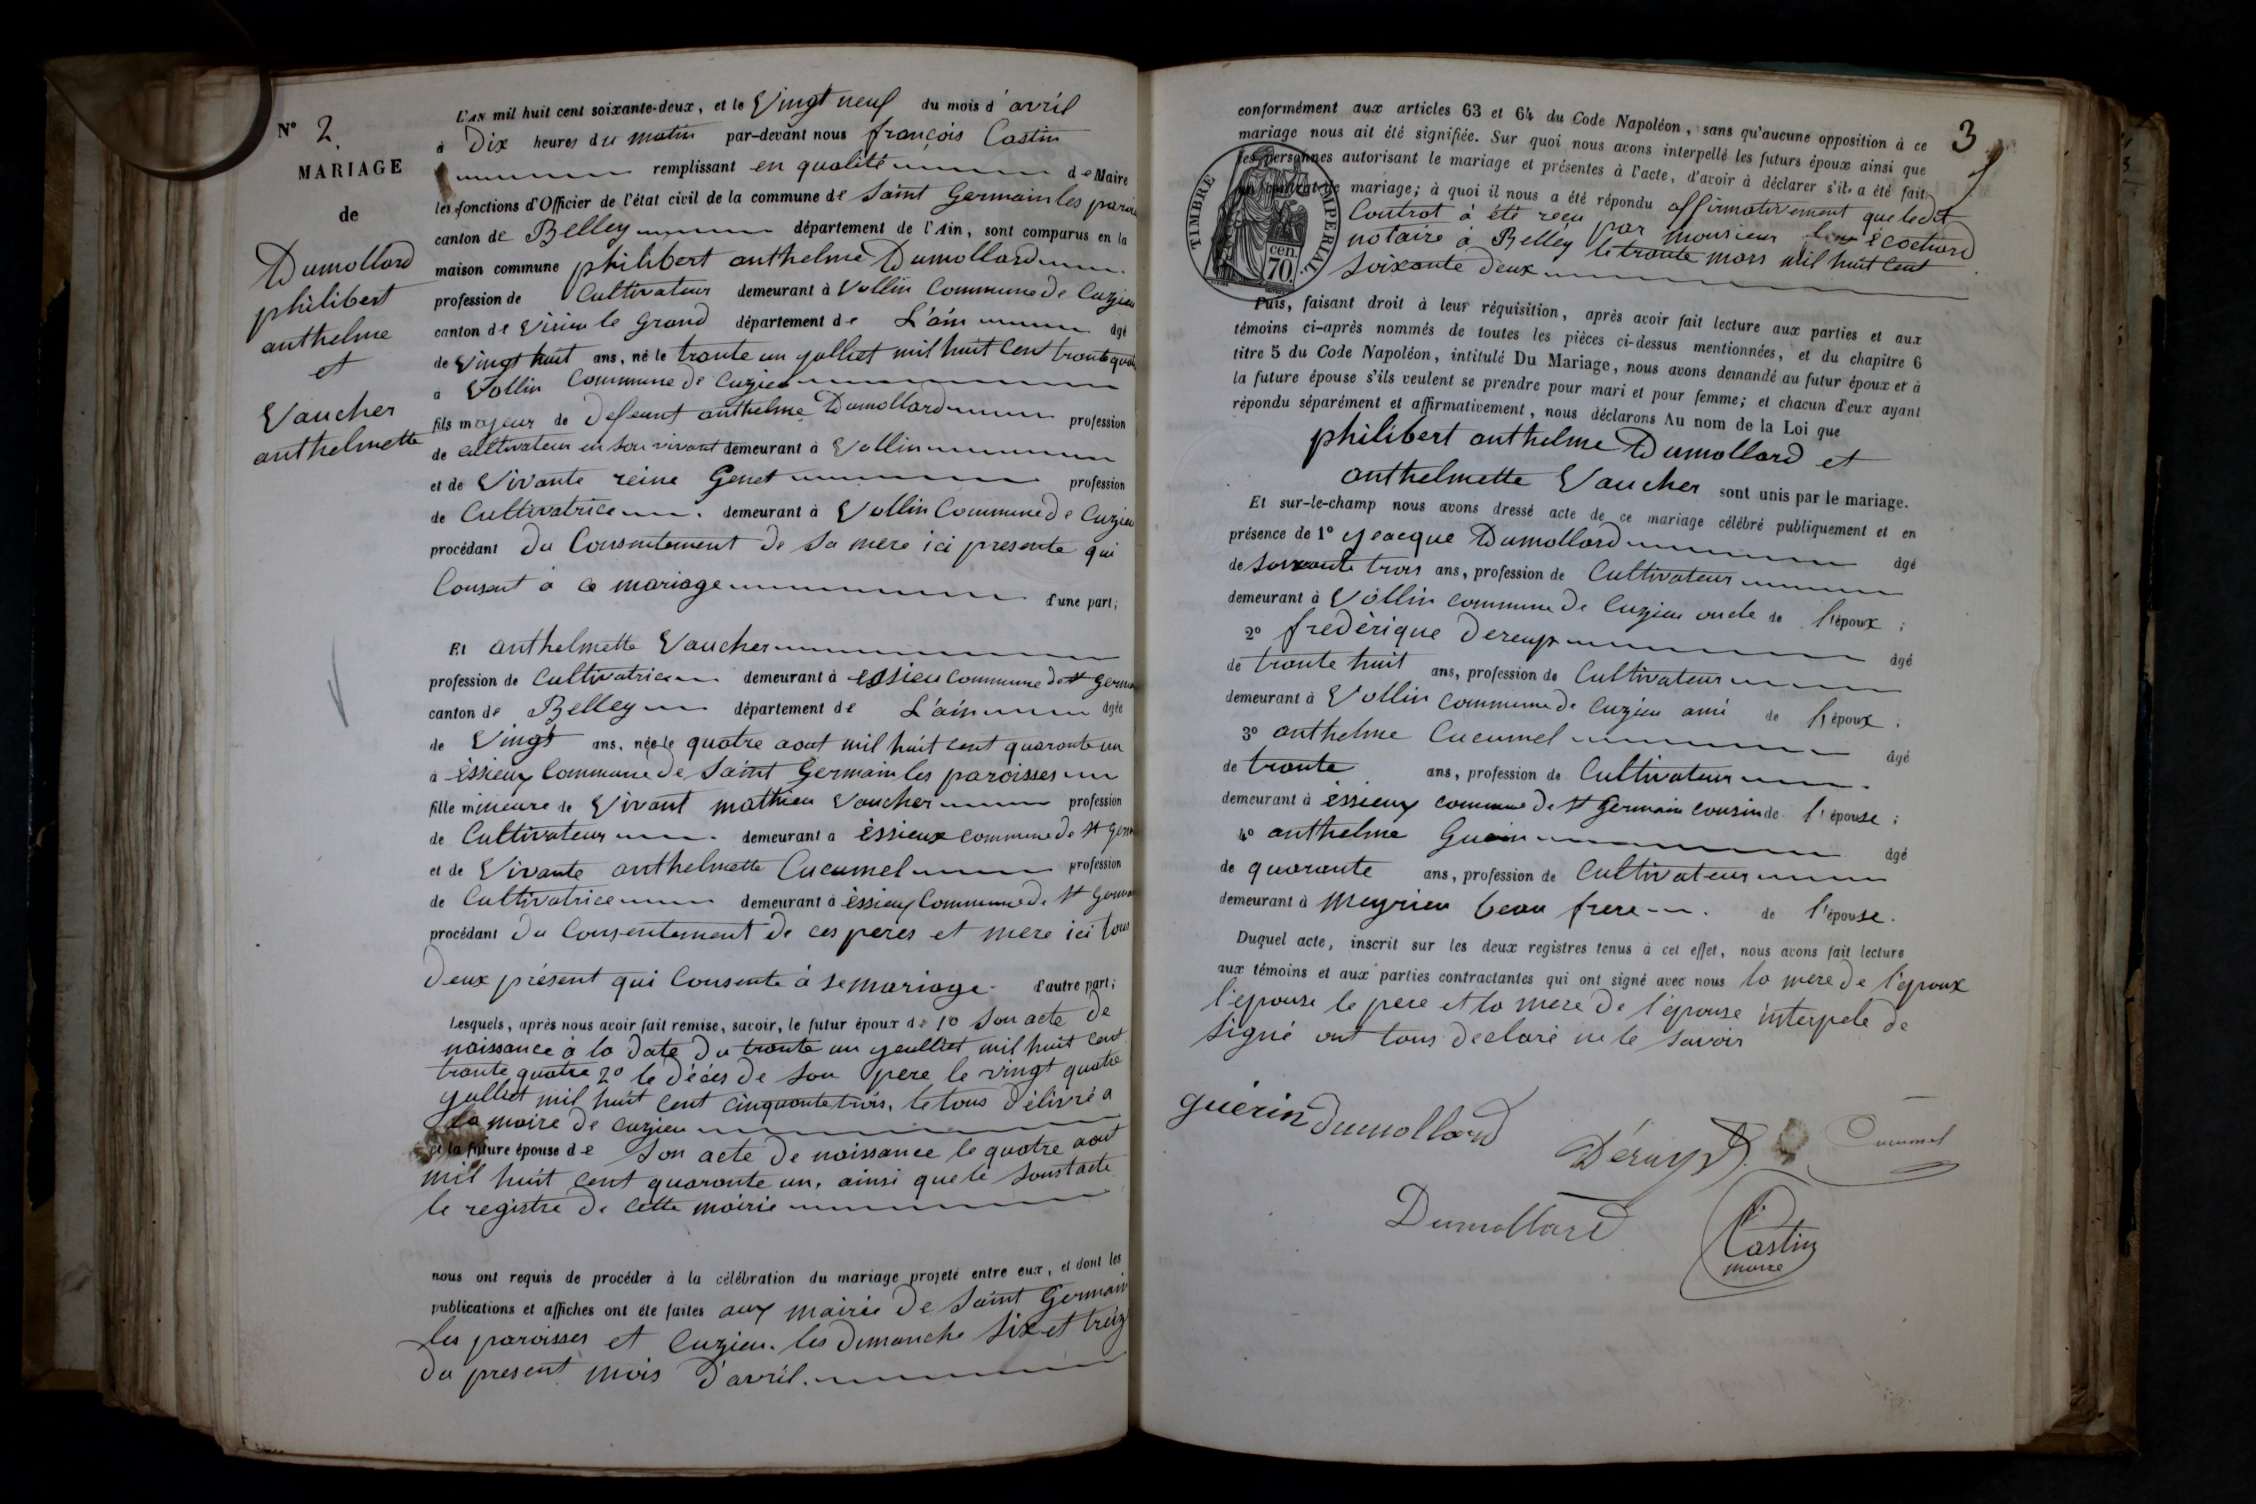 N° 2.
MARIAGE
de
Dumollard
philibert
anthelme
et
Vaucher
anthelmette
L'AN mil huit cent soixante-deux, et le Vingt neuf du mois d'avril
à Dix heures du matin par-devant nous françois Castin
remplissant en qualité de Maire
les fonctions d'Officier de l'état civil de la commune de Saint Germain les paroi
canton de Belley département de l'Ain, sont comparus en la
maison commune philibert anthelme Dumollard
profession de Cultivateur demeurant à Vollin Commune de Cuzieu
canton de Virieu le Grand département de L'ain âgé
de Vingt huit ans, né le trante un julliet mil huit cent trante quat
à Vollin Commune de Cuzieu
fils majeur de defeunt anthelme Dumollard profession
de cultivateur en son vivant demeurant à Vollin
et de Vivante reine Genet profession
de Cultivatrice demeurant à Vollin Commune de Cuzieu
procédant du Consentement de sa mere ici presente qui
Consent à ce mariage d'une part;
Et anthelmette Vaucher
profession de Cultivatrice demeurant à essieu commune de st Germa
canton de Belley département de L'ain âgée
de Vingt ans, née le quatre aout mil huit cent quarante un
à éssieux Commune de Saint Germain les paroisses
fille mineure de Vivant mathieu Vaucher profession
de Cultivateur demeurant à éssieux commune de st Germ
et de Vivante anthelmette Cucumel profession
de Cultivatrice demeurant à éssieux Commune de st Germa
procédant du Consentement de ces peres et mere ici tous
deux présent qui Consente à se mariage d'autre part;
Lesquels, après nous avoir fait remise, savoir, le futur époux de 1° son acte de
naissance à la date du trante un jeulliet mil huit cent
trante quatre 2° le décés de son pere le vingt quatre
julliet mil huit cent cinquante trois, le tous délivré a
la maire de cuzieu
et la future épouse de Son acte de naissance le quatre aout
mil huit cent quarante un, ainsi que le
le registre de cette mairie
nous ont requis de procéder à la célébration du mariage projeté entre eux, et dont les
publications et affiches ont été faites aux mairie de Saint Germain
les paroisses et Cuzieu. les dimanche six et treiz
du present mois d'avril.
3
conformément aux articles 63 et 64 du Code Napoléon, sans qu'aucune opposition à ce
mariage nous ait été signifiée. Sur quoi nous avons interpellé les futurs époux ainsi que
les personnes autorisant le mariage et présentes à l'acte, d'avoir à déclarer s'il a été fait
un contrat de mariage; à quoi il nous a été répondu affirmativement que ledit
Contrat à été réçu par monsieur écochard
notaire à Belley le trante mars mil huit cent
soixante deux
TIMBRE IMPERIAL
70 cen.
Puis, faisant droit à leur réquisition, après avoir fait lecture aux parties et aux
témoins ci-après nommés de toutes les pièces ci-dessus mentionnées, et du chapitre 6
titre 5 du Code Napoléon, intitulé Du Mariage, nous avons demandé au futur époux et à
la future épouse s'ils veulent se prendre pour mari et pour femme; et chacun d'eux ayant
répondu séparément et affirmativement, nous déclarons Au nom de la Loi que
philibert anthelme Dumollard et
anthelmette Vaucher sont unis par le mariage.
Et sur-le-champ nous avons dressé acte de ce mariage célébré publiquement et en
présence de 1° jeacque Dumollard âgé
de soixante trois ans, profession de Cultivateur
demeurant à Vollin commune de Cuzieu oncle de l'époux;
2° frédérique Dereuyx âgé
de trante huit ans, profession de Cultivateur
demeurant à Vollin commune de Cuzieu ami de l'époux;
3° anthelme Cucumel âgé
de trante ans, profession de Cultivateur
demeurant à éssieux commune de st Germain cousin de l'épouse;
4° anthelme Guerin âgé
de quarante ans, profession de Cultivateur
demeurant à Meyrieu beau frere de l'épouse.
Duquel acte, inscrit sur les deux registres tenus à cet effet, nous avons fait lecture
aux témoins et aux parties contractantes qui ont signé avec nous la mere de l'époux
l'épouse le pere et la mere de l'épouse interpele de
signé ont tous declaré ne le savoir
guerin Dumollard
Cucumel
Dumollard
Castin
maire